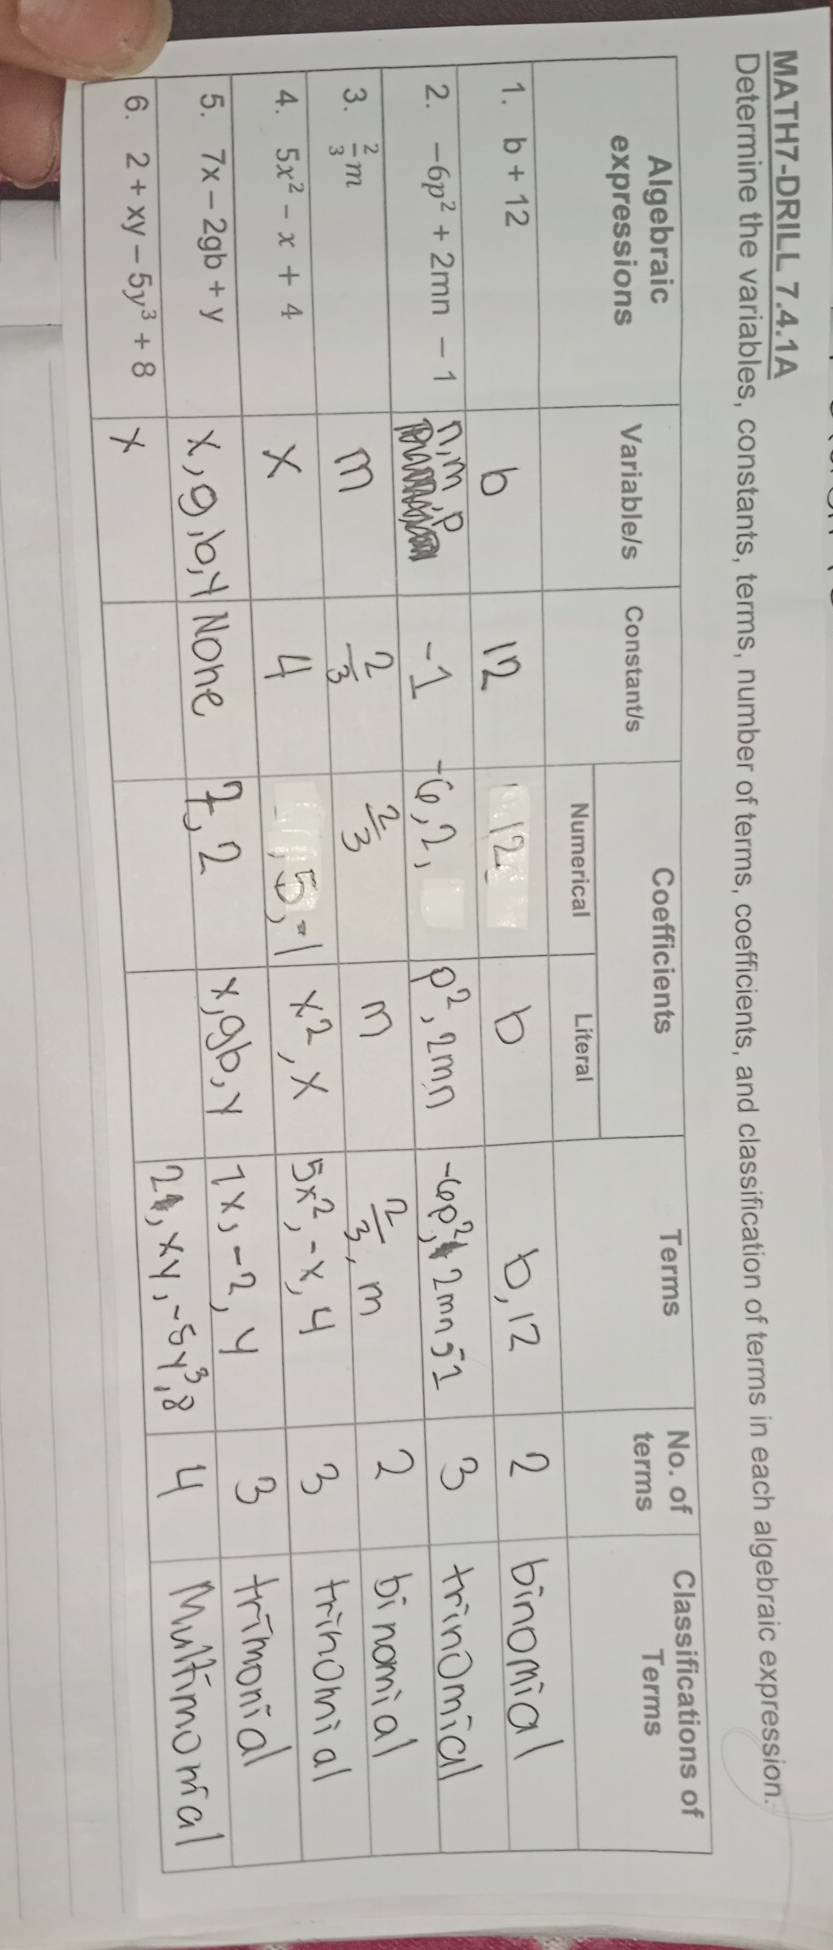 MATH7-DRILL 7.4.1A
Determine the variables, constants, terms, number of terms, coefficients, and classification of terms in each algebraic expression.
Algebraic expressions Variable/s Constant/s Coefficients Terms No. of terms Classifications of Terms
Numerical Literal
1. b + 12 b 12 12 b b, 12 2 binomial
2. −6p² + 2mn − 1 n, m, p -1 -6, 2, p², 2mn -6p², 2mn, -1 3 trinomial
3. 2/3 m m 2/3 2/3 m 2/3, m 2 binomial
4. 5x² − x + 4 x 4 , 5, -1 x², x 5x², -x, 4 3 trinomial
5. 7x − 2gb + y x, g, b, y None 7, 2 x, gb, y 7x, -2, y 3 trimonial
6. 2 + xy − 5y³ + 8 x 2, xy, -5y³, 8 4 Multimonial